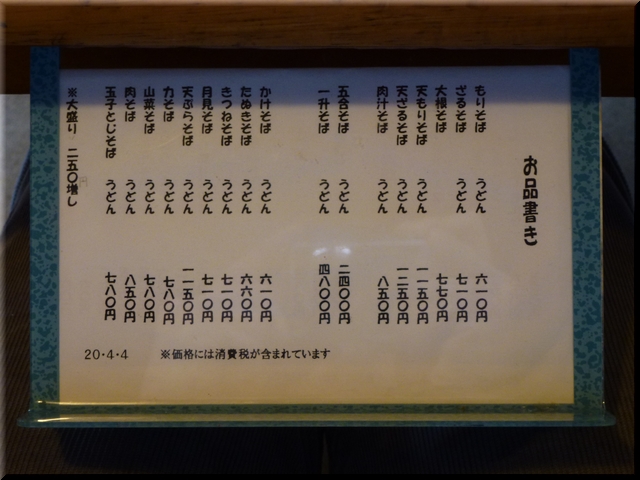 お品書き
もりそば うどん 六一〇円
ざるそば うどん 七一〇円
大根そば 七七〇円
天もりそば うどん 一一五〇円
天ざるそば うどん 一二五〇円
肉汁そば うどん 八五〇円
五合そば うどん 二四〇〇円
一升そば うどん 四八〇〇円
かけそば うどん 六一〇円
たぬきそば うどん 六六〇円
きつねそば うどん 七一〇円
月見そば うどん 七一〇円
天ぷらそば うどん 一一五〇円
力そば うどん 七八〇円
山菜そば うどん 七八〇円
肉そば うどん 八五〇円
玉子とじそば うどん 七八〇円
※大盛り 二五〇円増し
20・4・4 ※価格には消費税が含まれています